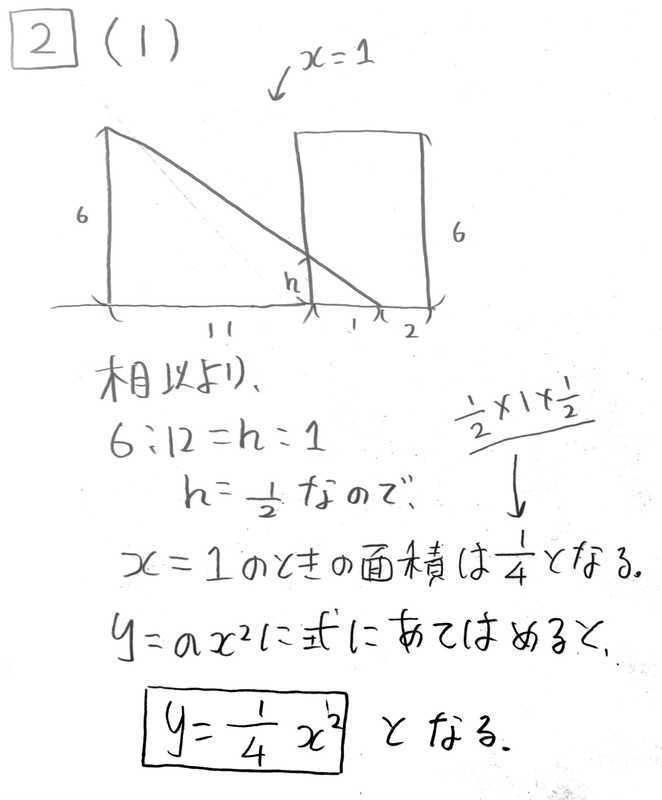 2 (1)
x=1
6
h
6
11
1
2
相似より、
6:12=h:1
1/2×1×1/2
h=1/2なので、
x=1のときの面積は1/4となる.
y=ax²に式にあてはめると、
y=1/4 x² となる.